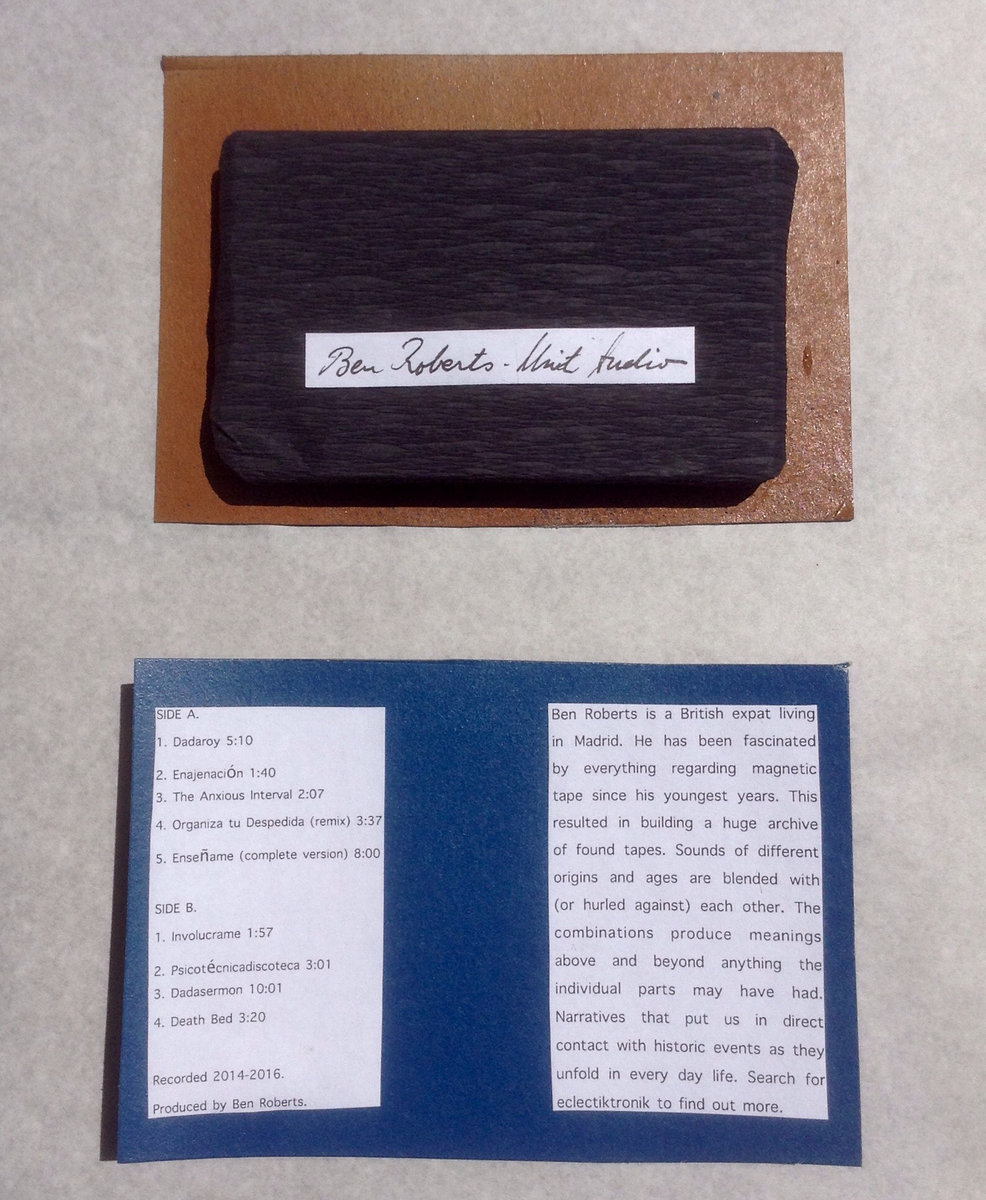 Ben Roberts - Unit Audio
SIDE A.
1. Dadaroy 5:10
2. Enajenación 1:40
3. The Anxious Interval 2:07
4. Organiza tu Despedida (remix) 3:37
5. Enseñame (complete version) 8:00
SIDE B.
1. Involucrame 1:57
2. Psicotécnicadiscoteca 3:01
3. Dadasermon 10:01
4. Death Bed 3:20
Recorded 2014-2016.
Produced by Ben Roberts.
Ben Roberts is a British expat living
in Madrid. He has been fascinated
by everything regarding magnetic
tape since his youngest years. This
resulted in building a huge archive
of found tapes. Sounds of different
origins and ages are blended with
(or hurled against) each other. The
combinations produce meanings
above and beyond anything the
individual parts may have had.
Narratives that put us in direct
contact with historic events as they
unfold in every day life. Search for
eclectiktronik to find out more.